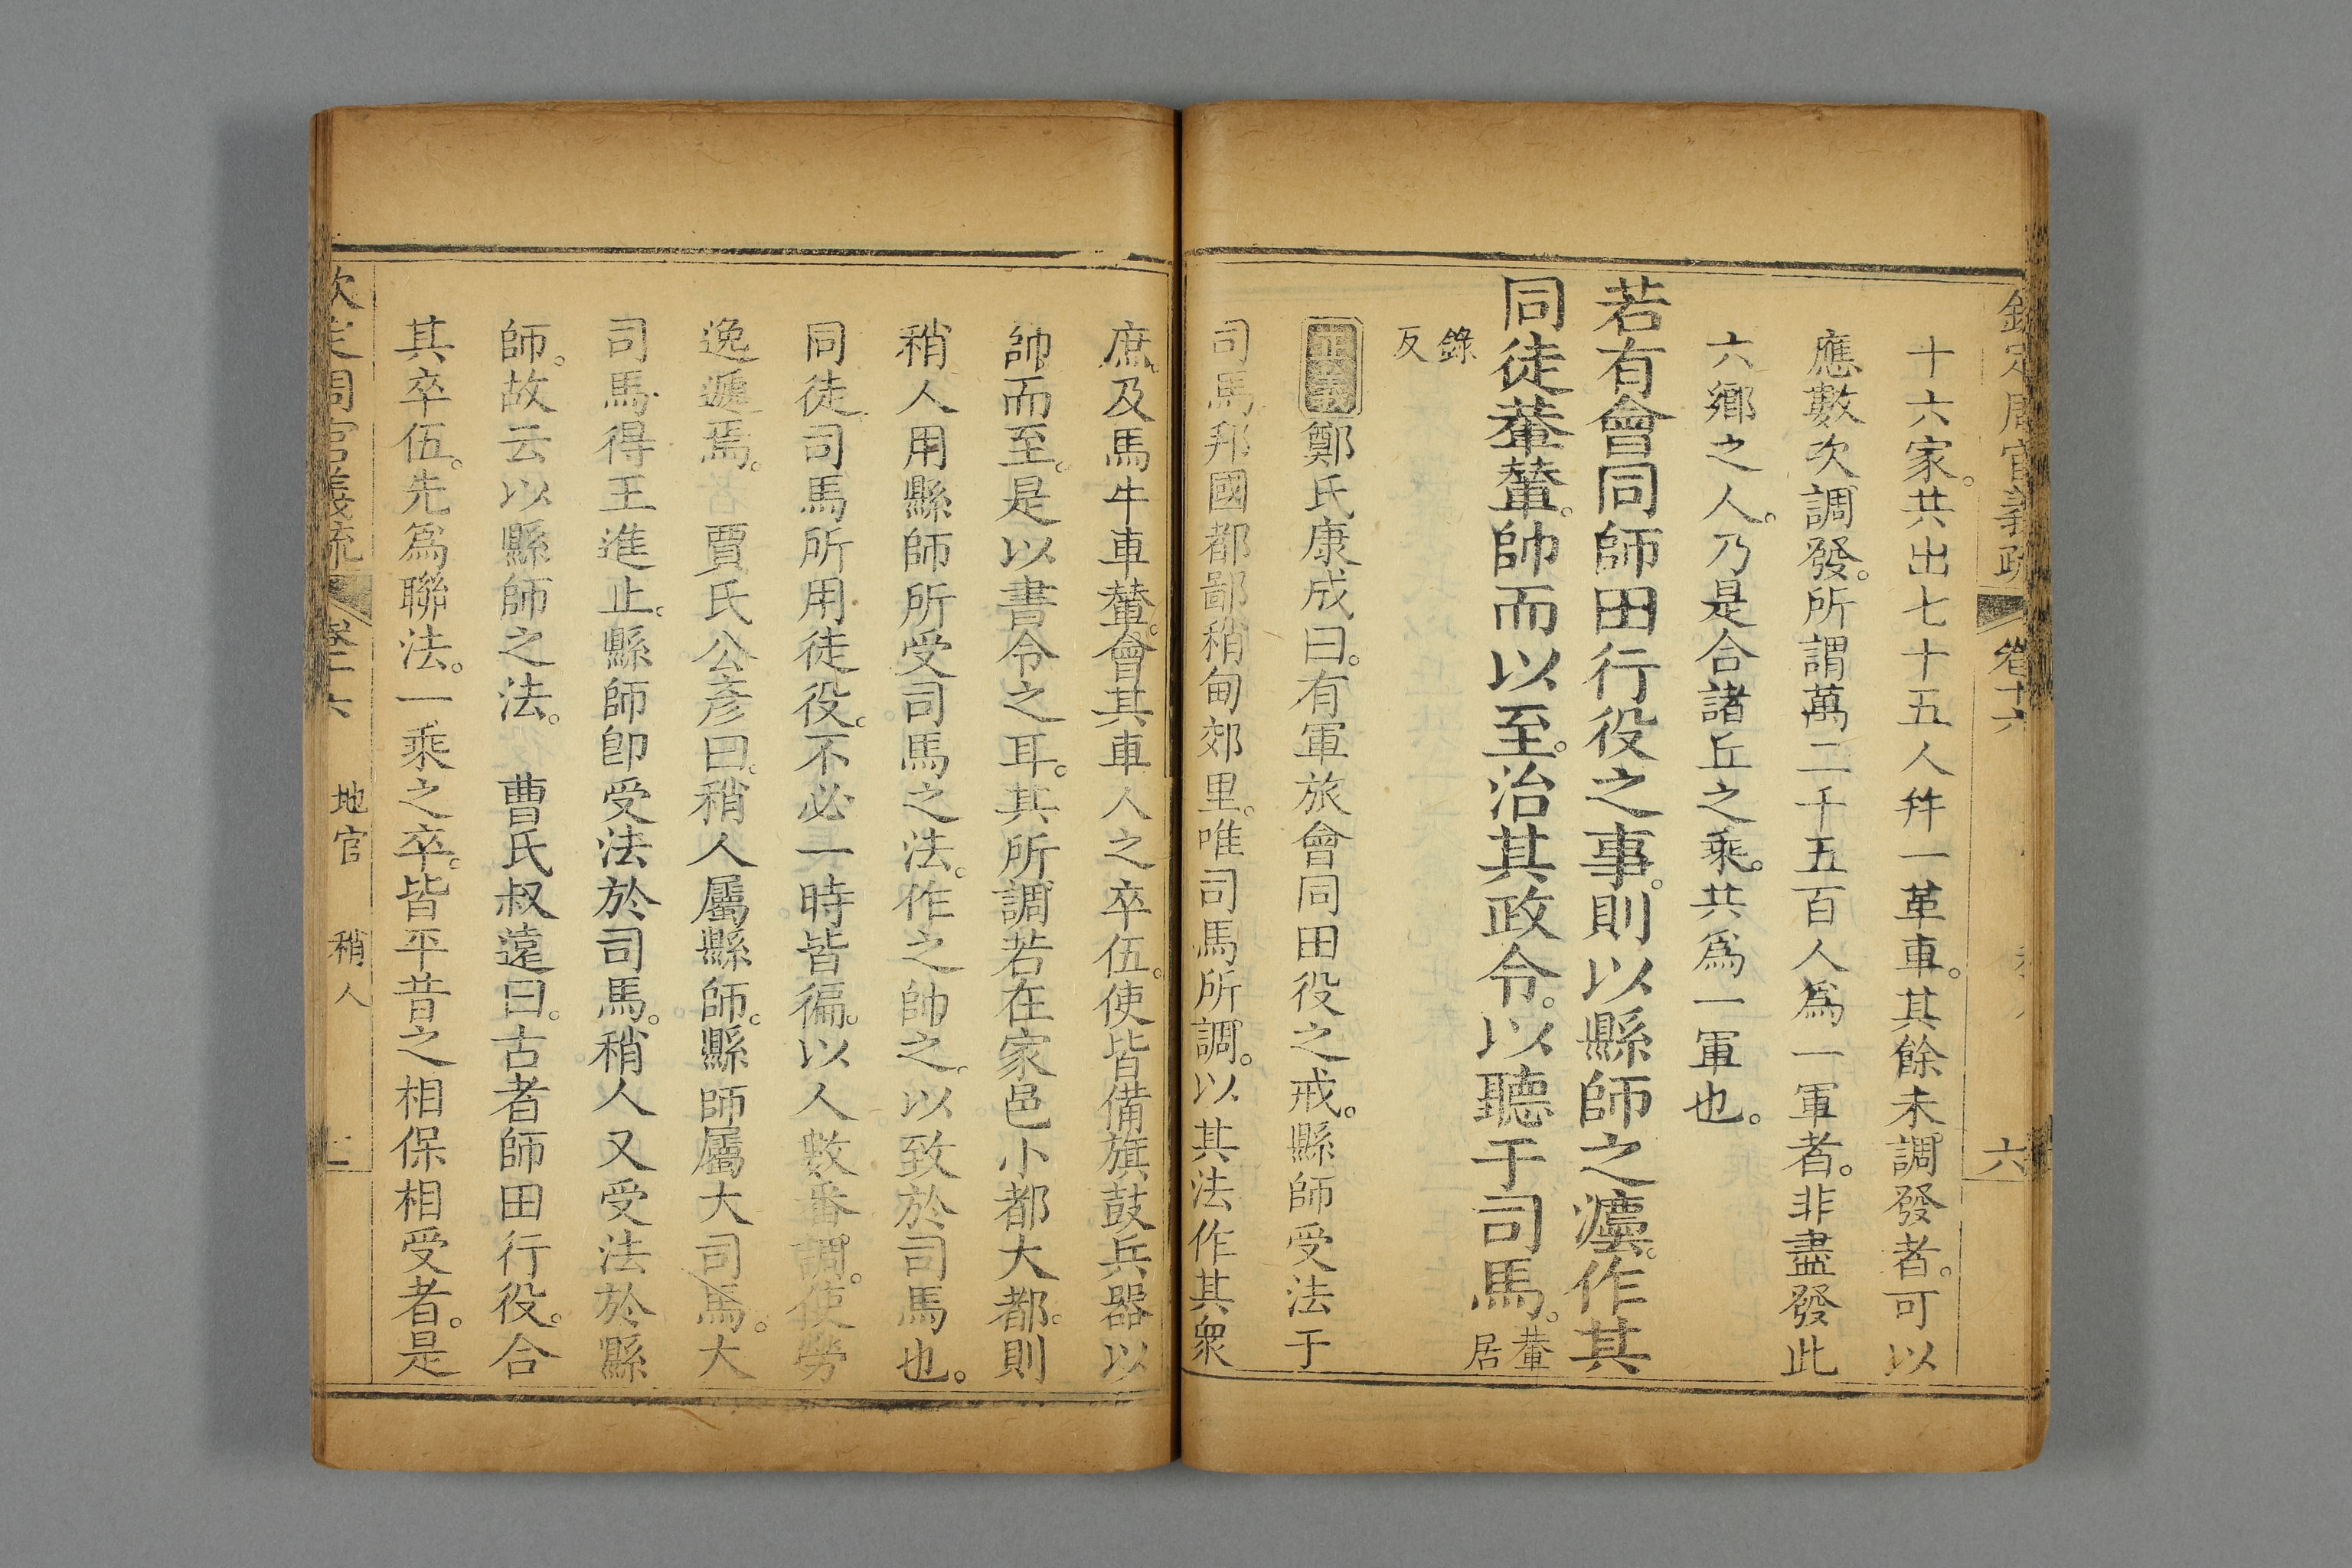 欽定周官義疏 卷十六 六
十六家。共出七十五人幷一革車。其餘未調發者。可以
應數次調發。所謂萬二千五百人爲一軍者。非盡發此
六鄉之人。乃是合諸丘之乘。共爲一軍也。
若有會同師田行役之事。則以縣師之灋。作其
同徒輂輦。帥而以至。治其政令。以聽于司馬。輂居
錄反
正義鄭氏康成曰。有軍旅會同田役之戒。縣師受法于
司馬邦國都鄙稍甸郊里。唯司馬所調。以其法作其衆
庶。及馬牛車輦。會其車人之卒伍。使皆備旗鼓兵器。以
帥而至。是以書令之耳。其所調若在家邑小都大都。則
稍人用縣師所受司馬之法。作之帥之。以致於司馬也。
同徒司馬所用徒役。不必一時皆徧。以人數番調。使勞
逸遞焉。 賈氏公彥曰。稍人屬縣師。縣師屬大司馬。大
司馬得王進止。縣師卽受法於司馬。稍人又受法於縣
師。故云以縣師之法。 曹氏叔遠曰。古者師田行役。合
其卒伍。先爲聯法。一乘之卒。皆平昔之相保相受者。是
欽定周官義疏 卷十六 地官 稍人